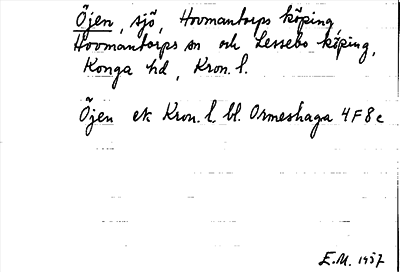 Öjen, sjö, Hovmantorps köping
Hovmantorps sn och Lessebo köping,
Konga hd, Kron. l.
Öjen ek Kron. l. bl. Ormeshaga 4F8c
E.M. 1957